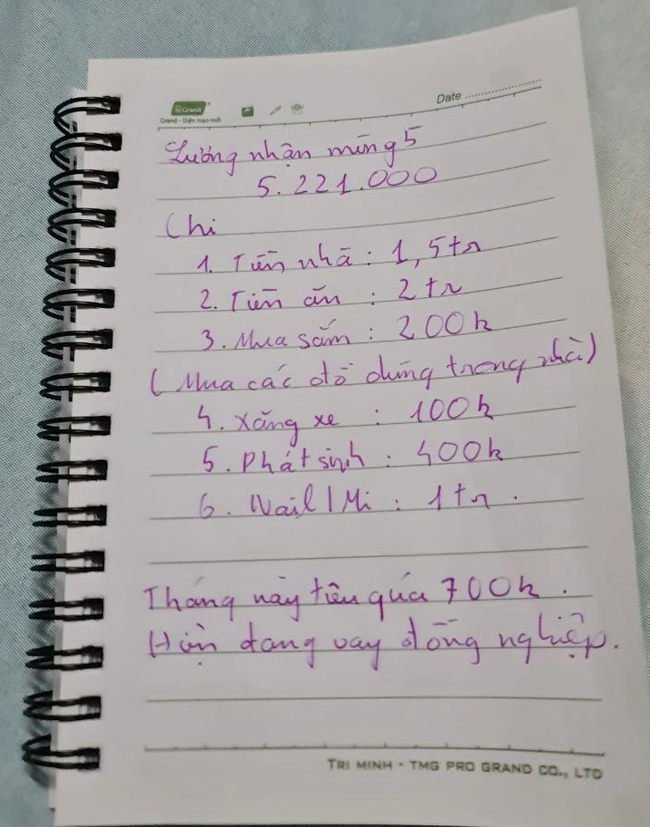 Grand
Grand - Diện mạo mới
Date
Lương nhận mùng 5
5.221.000
Chi
1. Tiền nhà : 1,5tr
2. Tiền ăn : 2tr
3. Mua sắm : 200k
(Mua các đồ dùng trong nhà)
4. Xăng xe : 100k
5. Phát sinh : 400k
6. Nail/Mi : 1tr.
Tháng này tiêu quá 700k.
Hiện đang vay đồng nghiệp.
TRI MINH - TMG PRO GRAND CO., LTD